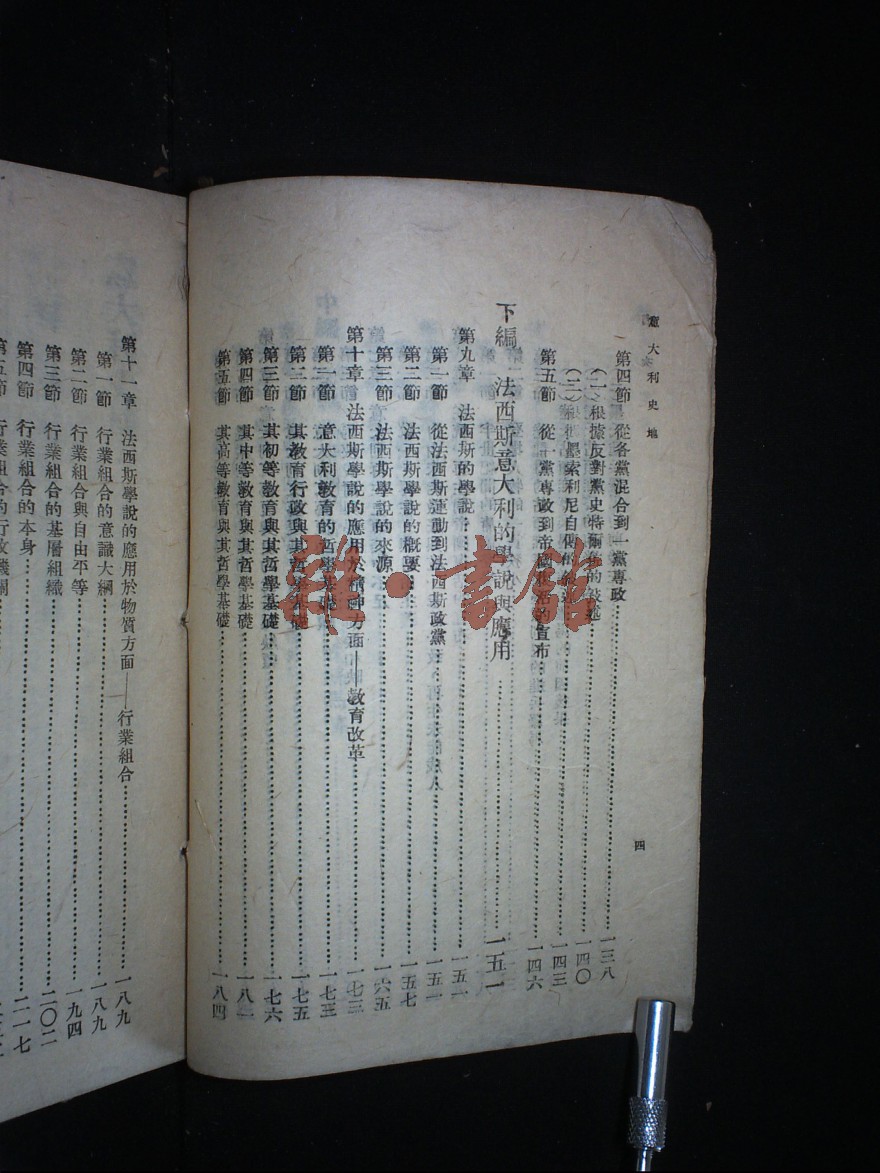 意大利史地
第四節 從各黨混合到一黨專政……一三八
(一)根據反對黨史特爾 的敍述……一四〇
(二) 墨索利尼自 的 ……一四三
第五節 從一黨專政到帝國 的宣布……一四六
下編 法西斯意大利的學說與應用……一五一
第九章 法西斯的學說……一五一
第一節 從法西斯運動到法西斯政黨……一五一
第二節 法西斯學說的概要……一五七
第三節 法西斯學說的來源……一六五
第十章 法西斯學說的應用於精神方面——教育改革……一七三
第一節 意大利教育的哲學基礎……一七三
第二節 其教育行政與其哲學基礎……一七五
第三節 其初等教育與其哲學基礎……一七六
第四節 其中等教育與其哲學基礎……一八一
第五節 其高等教育與其哲學基礎……一八四
四
第十一章 法西斯學說的應用於物質方面——行業組合……一八九
第一節 行業組合的意識大綱……一八九
第二節 行業組合與自由平等……一九四
第三節 行業組合的基層組織……二〇二
第四節 行業組合的本身……二一七
第五節 行業組合的行政機關……
雜·書館